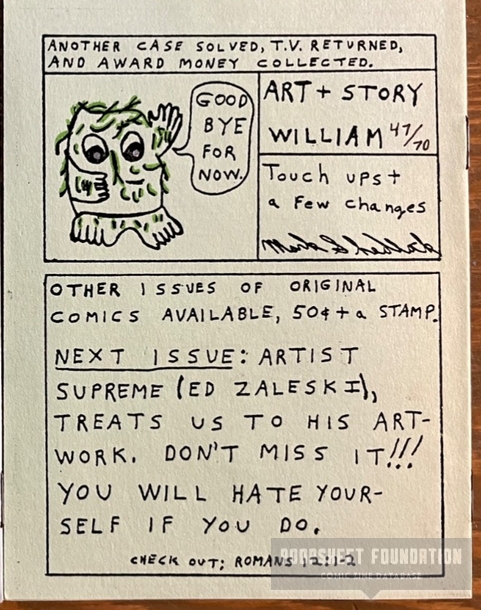 ANOTHER CASE SOLVED, T.V. RETURNED,
AND AWARD MONEY COLLECTED.
GOOD
BYE
FOR
NOW.
ART + STORY
WILLIAM 47/70
Touch ups +
a Few changes
OTHER ISSUES OF ORIGINAL
COMICS AVAILABLE, 50¢ + a STAMP.
NEXT ISSUE: ARTIST
SUPREME (ED ZALESKI),
TREATS US TO HIS ART-
WORK. DON'T MISS IT!!!
YOU WILL HATE YOUR-
SELF IF YOU DO.
CHECK OUT; ROMANS 12:1-2
POOPSHEET FOUNDATION
COMIC ZINE DATABASE